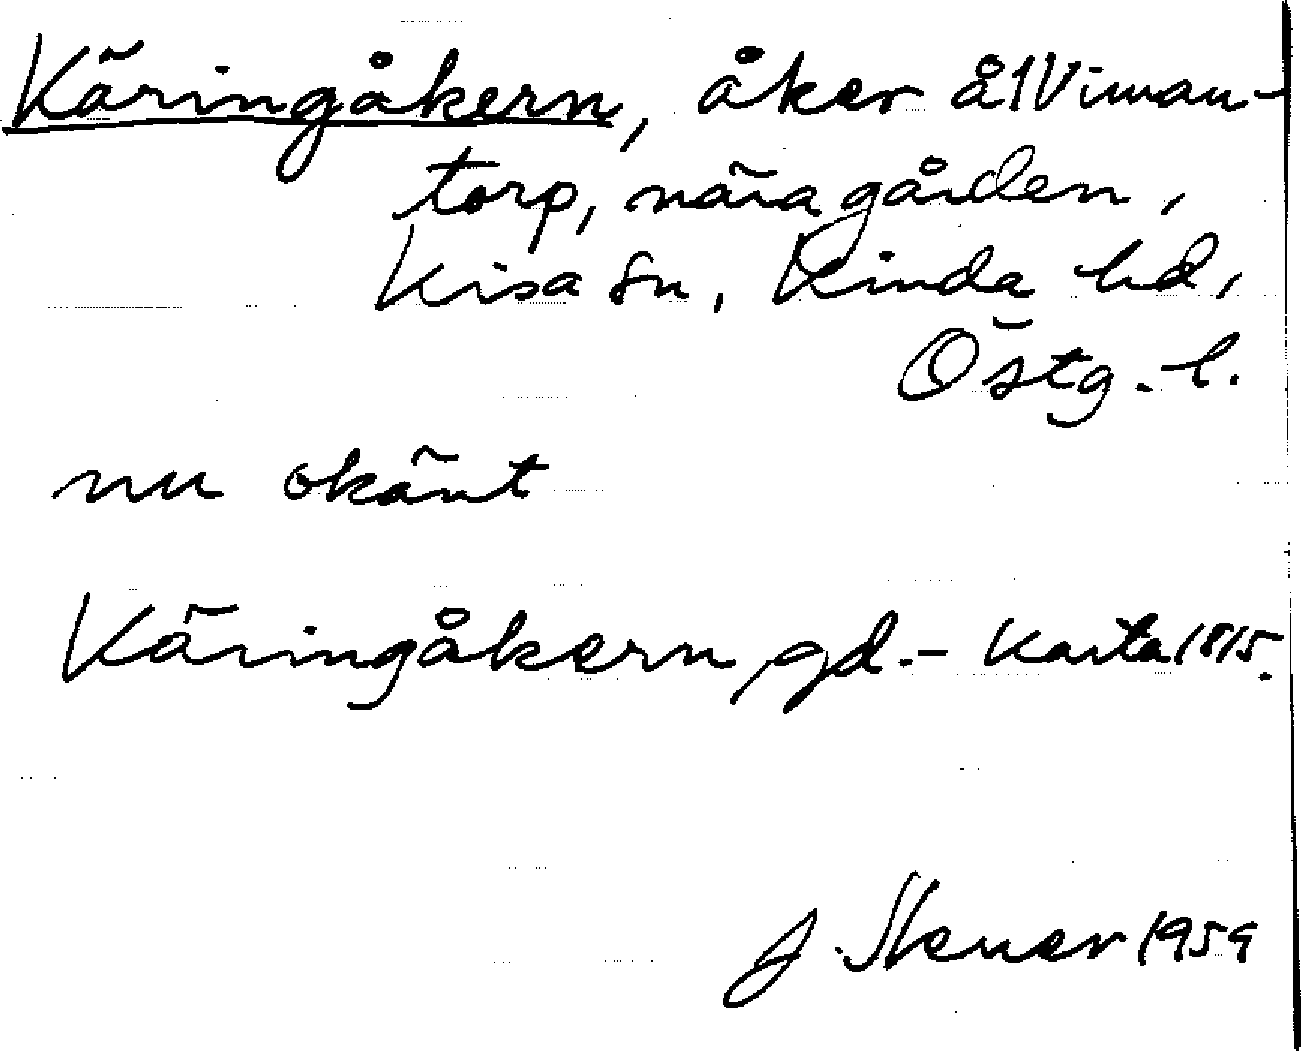 Käringåkern, åker å 1 Viman-
torp, nära gården,
Kisa sn, Kinda hd,
Östg. l.
nu okänt
Käringåkern, gd. - Karta 1815.
J. Stener 1959